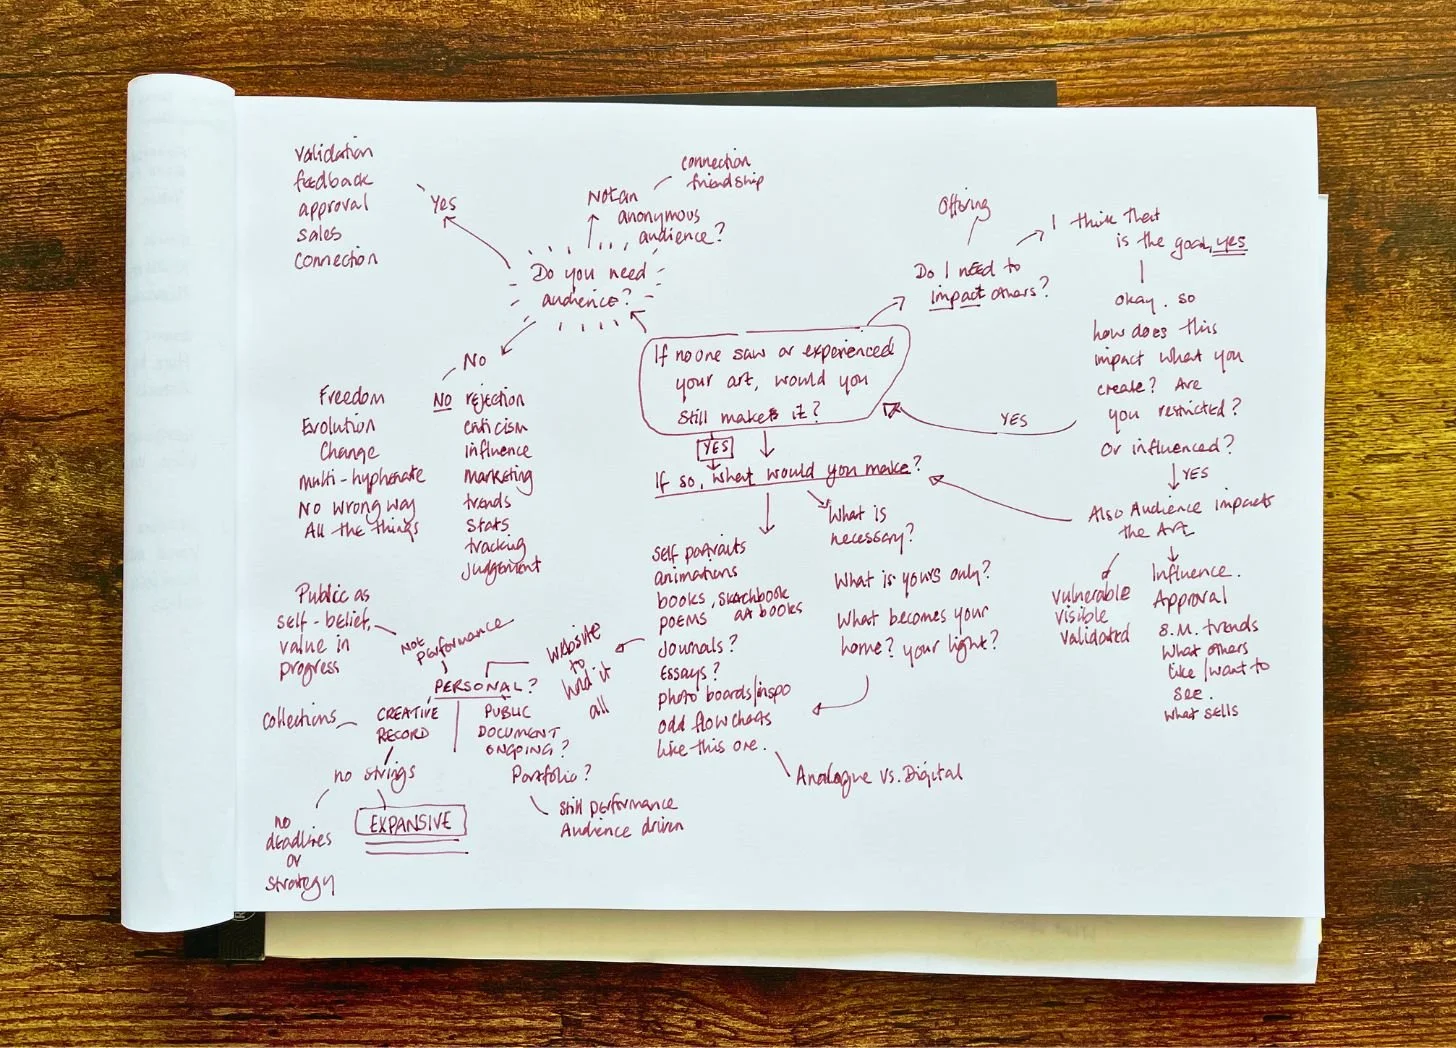 Validation
feedback
approval
sales
Connection
Yes
Not an
anonymous
audience?
connection
friendship
Do you need
audience?
Offering
Do I need to
impact others?
I think that
is the goal, yes
okay. so
how does this
impact what you
create? Are
you restricted?
Or influenced?
YES
YES
Also Audience impacts
the Art
vulnerable
visible
validated
Influence.
Approval
S.M. trends
What others
like/want to
see.
What sells
If no one saw or experienced
your art, would you
still make it?
YES
If so, what would you make?
What is
necessary?
What is yours only?
What becomes your
home? your light?
Self portraits
animations
books, sketchbook
art books
poems
Journals?
Essays?
photo boards/inspo
odd flow charts
like this one.
Analogue vs. Digital
No
Freedom
Evolution
Change
multi-hyphenate
No wrong way
All the things
NO rejection
criticism
influence
marketing
trends
stats
tracking
judgement
Website
to
hold it
all
PERSONAL?
Not
performance
Public as
self-belief,
value in
progress
CREATIVE
RECORD
Collections
no strings
no
deadlines
or
strategy
EXPANSIVE
PUBLIC
DOCUMENT
ONGOING?
Portfolio?
Still performance
Audience driven